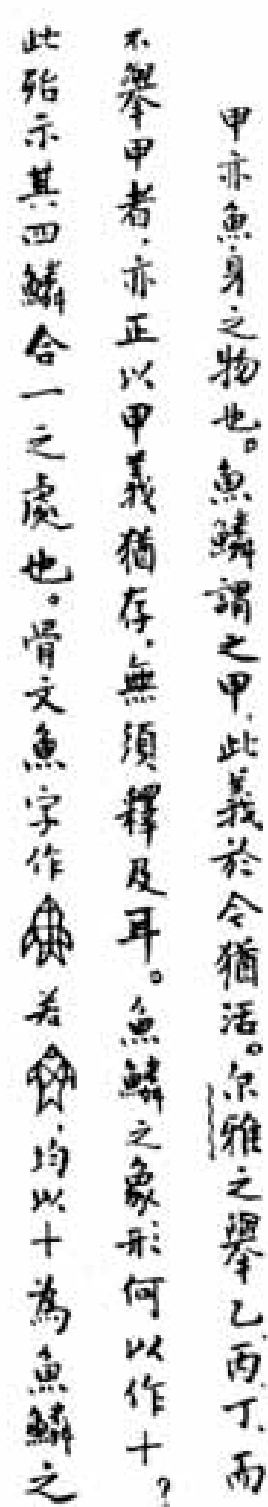 甲亦魚身之物也。魚鱗謂之甲，此義於今猶活。尔雅之舉乙、丙、丁、而
不舉甲者，亦正以甲義猶存，無須釋及耳。魚鱗之象形何以作十？
此殆示其四鱗合一之處也。骨文魚字作 若 ，均以十為魚鱗之